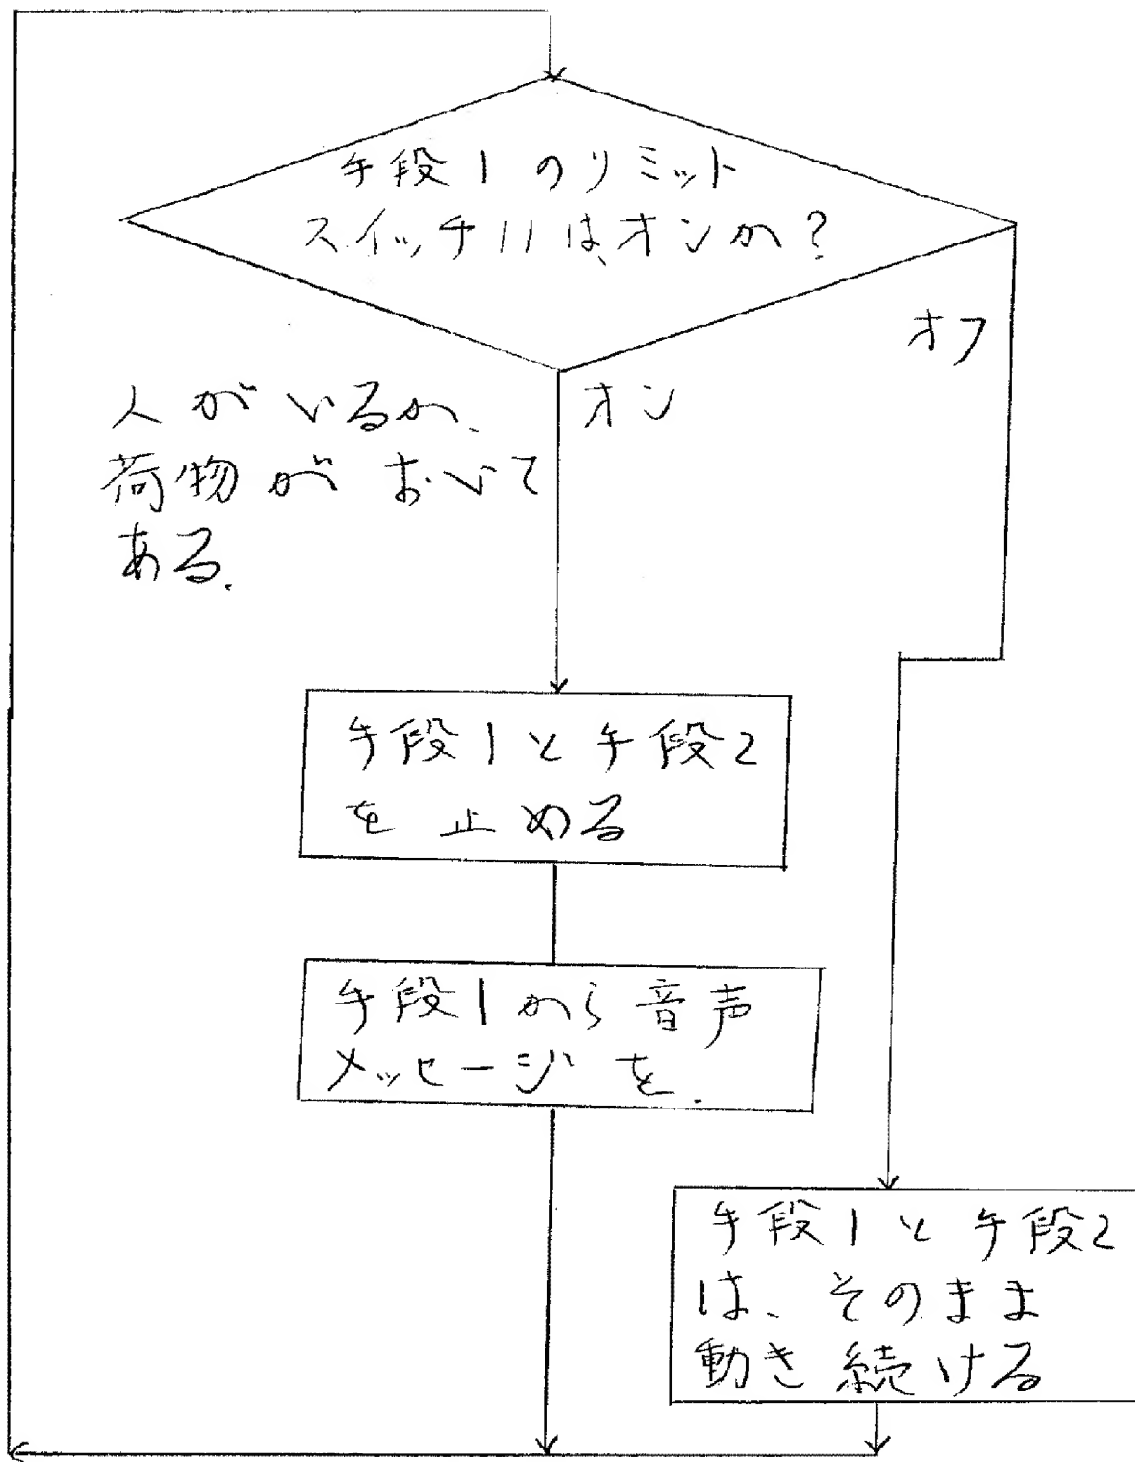 手段1のリミット
スイッチ11は、オンか?
オフ
オン
人がいるか、
荷物がおいて
ある.
手段1と手段2
を止める
手段1から音声
メッセージを.
手段1と手段2
は、そのまま
動き続ける